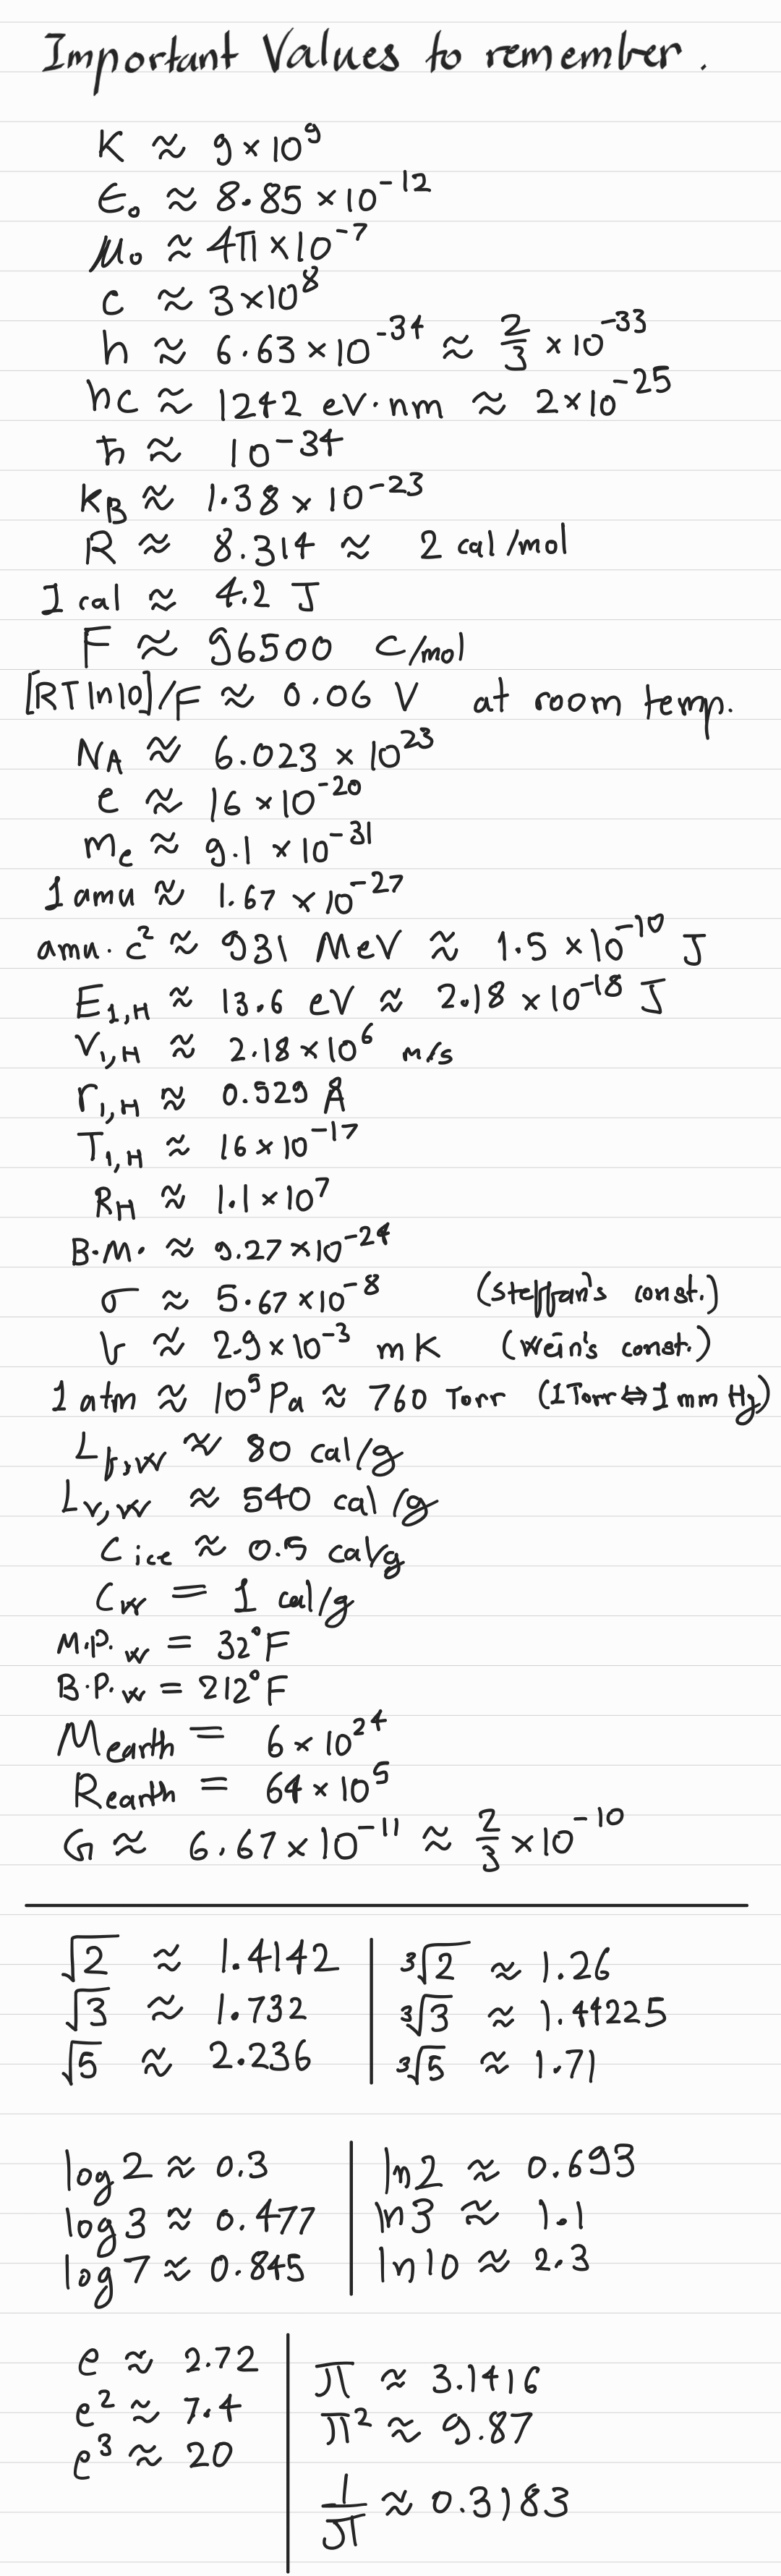 Important Values to remember.
K ≈ 9 × 10⁹
ϵ₀ ≈ 8.85 × 10⁻¹²
μ₀ ≈ 4π × 10⁻⁷
c ≈ 3 × 10⁸
h ≈ 6.63 × 10⁻³⁴ ≈ 2/3 × 10⁻³³
hc ≈ 1242 eV·nm ≈ 2 × 10⁻²⁵
ħ ≈ 10⁻³⁴
K_B ≈ 1.38 × 10⁻²³
R ≈ 8.314 ≈ 2 cal/mol
1 cal ≈ 4.2 J
F ≈ 96500 C/mol
[RT ln10]/F ≈ 0.06 V at room temp.
N_A ≈ 6.023 × 10²³
e ≈ 16 × 10⁻²⁰
m_e ≈ 9.1 × 10⁻³¹
1 amu ≈ 1.67 × 10⁻²⁷
amu·c² ≈ 931 MeV ≈ 1.5 × 10⁻¹⁰ J
E_1,H ≈ 13.6 eV ≈ 2.18 × 10⁻¹⁸ J
V_1,H ≈ 2.18 × 10⁶ m/s
r_1,H ≈ 0.529 Å
T_1,H ≈ 16 × 10⁻¹⁷
R_H ≈ 1.1 × 10⁷
B.M. ≈ 9.27 × 10⁻²⁴
σ ≈ 5.67 × 10⁻⁸ (Steffan's const.)
b ≈ 2.9 × 10⁻³ mK (Wein's const.)
1 atm ≈ 10⁵ Pa ≈ 760 Torr (1 Torr ⇔ 1 mm Hg)
L_f,w ≈ 80 cal/g
L_v,w ≈ 540 cal/g
C_ice ≈ 0.5 cal/g
C_w = 1 cal/g
M.P._w = 32°F
B.P._w = 212°F
M_earth = 6 × 10²⁴
R_earth = 64 × 10⁵
G ≈ 6.67 × 10⁻¹¹ ≈ 2/3 × 10⁻¹⁰
√2 ≈ 1.4142 | ³√2 ≈ 1.26
√3 ≈ 1.732 | ³√3 ≈ 1.44225
√5 ≈ 2.236 | ³√5 ≈ 1.71
log 2 ≈ 0.3 | ln2 ≈ 0.693
log 3 ≈ 0.477 | ln3 ≈ 1.1
log 7 ≈ 0.845 | ln10 ≈ 2.3
e ≈ 2.72 | π ≈ 3.1416
e² ≈ 7.4 | π² ≈ 9.87
e³ ≈ 20 | 1/π ≈ 0.3183